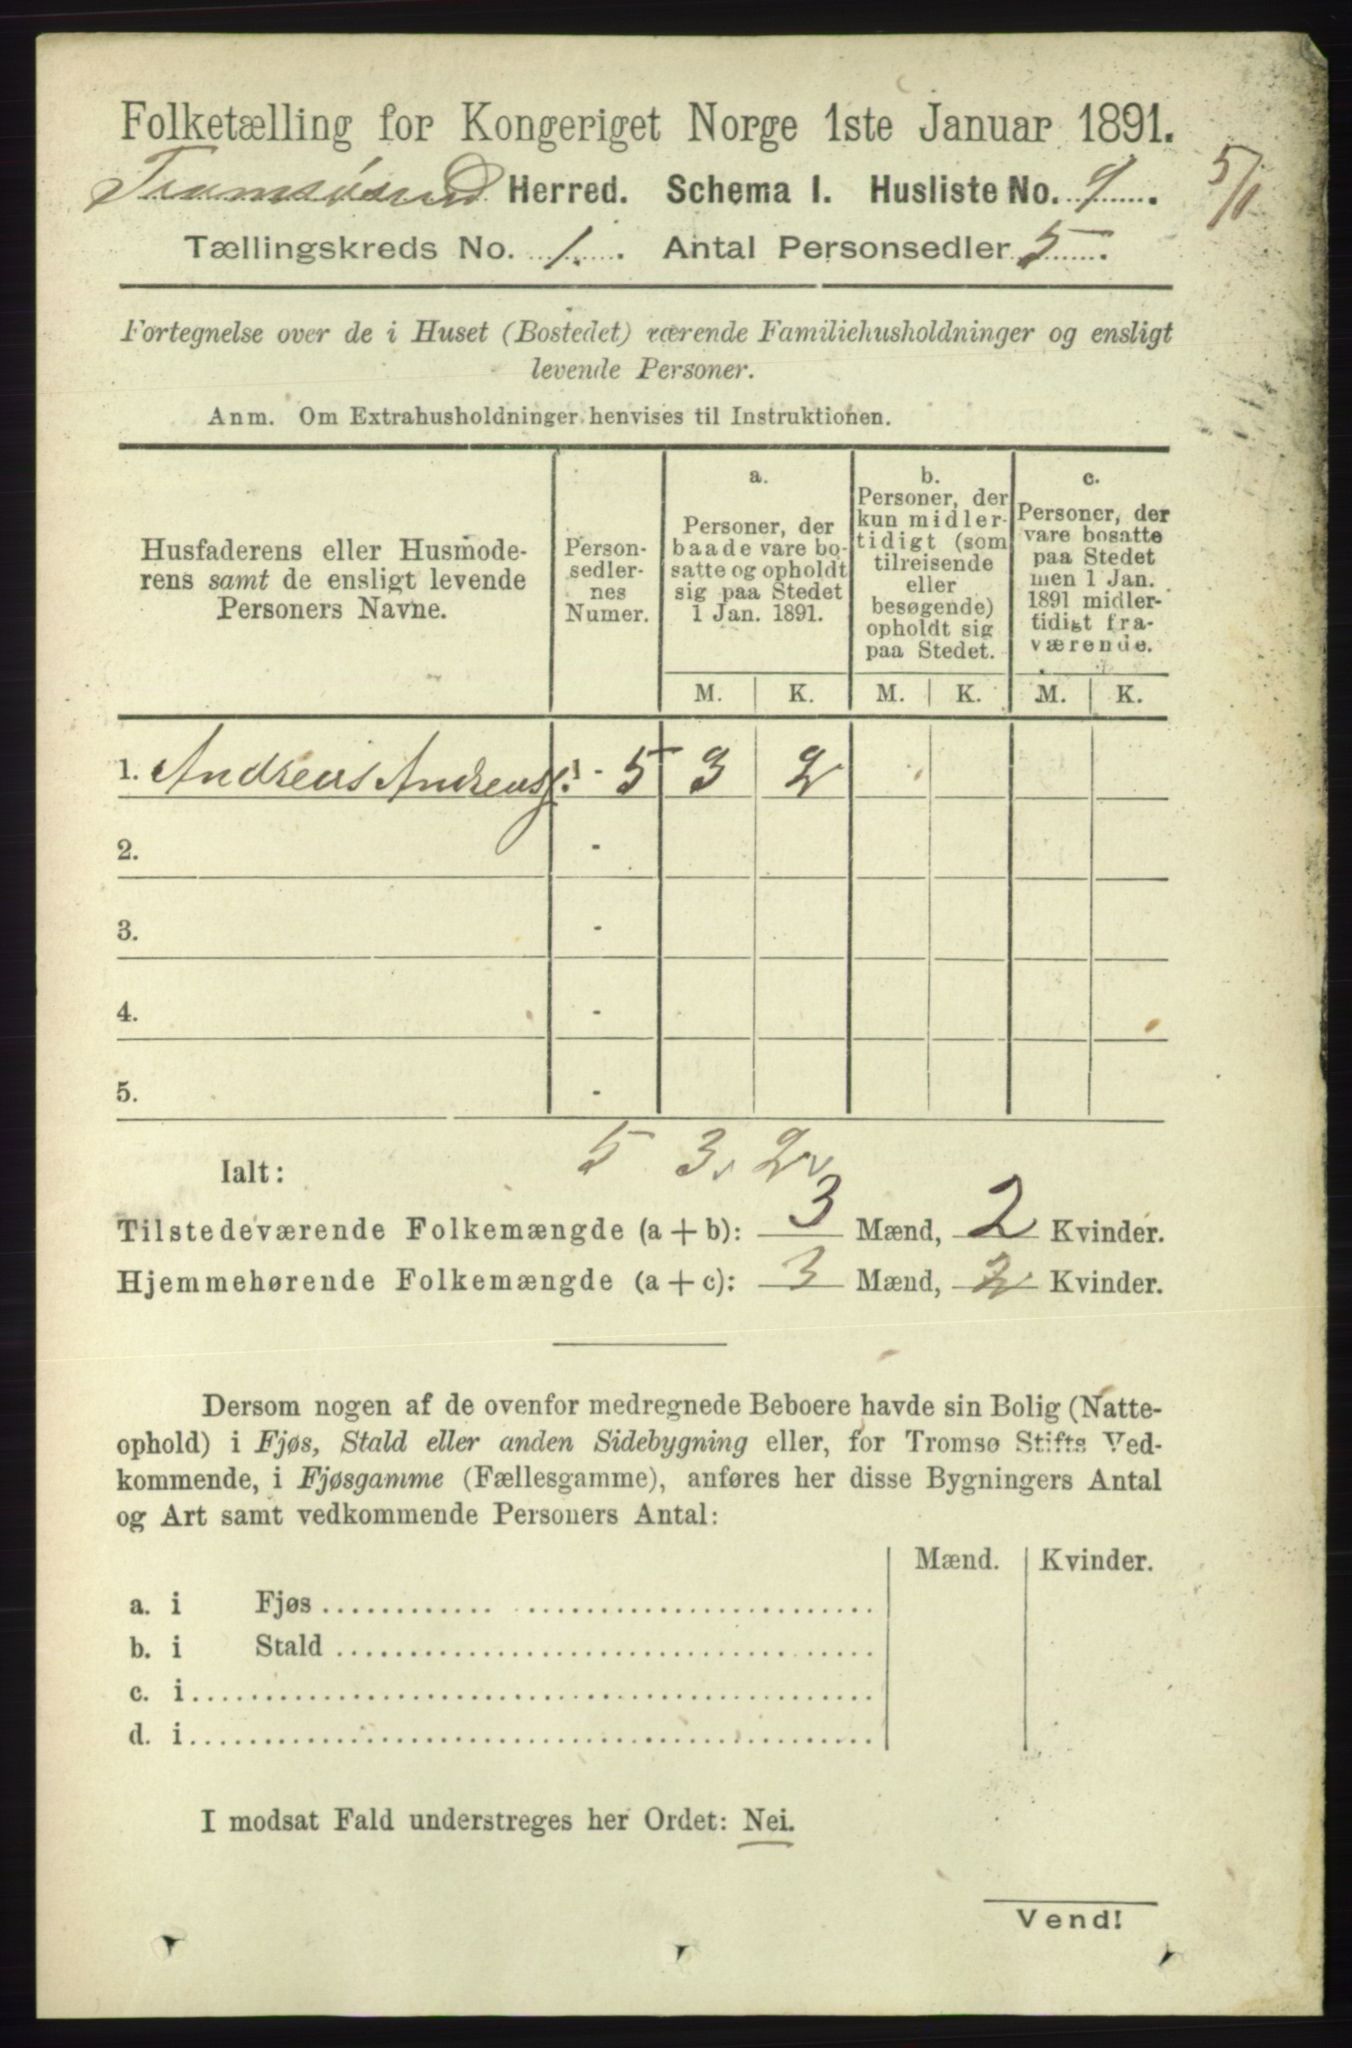 Folketælling for Kongeriget Norge 1ste Januar 1891.
Tromsøsund Herred. Schema I. Husliste No. 9.
5/1
Tællingskreds No. 1. Antal Personsedler 5.
Fortegnelse over de i Huset (Bostedet) værende Familiehusholdninger og ensligt
levende Personer.
Anm. Om Extrahusholdninger henvises til Instruktionen.
Husfaderens eller Husmode-
rens samt de ensligt levende
Personers Navne.
Person-
sedler-
nes
Numer.
a.
Personer, der
baade vare bo-
satte og opholdt
sig paa Stedet
1 Jan. 1891.
b.
Personer, der
kun midler-
tidigt (som
tilreisende
eller
besøgende)
opholdt sig
paa Stedet.
c.
Personer, der
vare bosatte
paa Stedet
men 1 Jan.
1891 midler-
tidigt fra-
værende.
M. K. M. K. M. K.
1. Andreas Andreas 1 - 5 3 2
2. -
3. -
4. -
5. -
5 3 2
Ialt:
Tilstedeværende Folkemængde (a + b): 3 Mænd, 2 Kvinder.
Hjemmehørende Folkemængde (a + c): 3 Mænd, 2 Kvinder.
Dersom nogen af de ovenfor medregnede Beboere havde sin Bolig (Natte-
ophold) i Fjøs, Stald eller anden Sidebygning eller, for Tromsø Stifts Ved-
kommende, i Fjøsgamme (Fællesgamme), anføres her disse Bygningers Antal
og Art samt vedkommende Personers Antal:
Mænd. Kvinder.
a. i Fjøs
b. i Stald
c. i
d. i
I modsat Fald understreges her Ordet: Nei.
Vend!